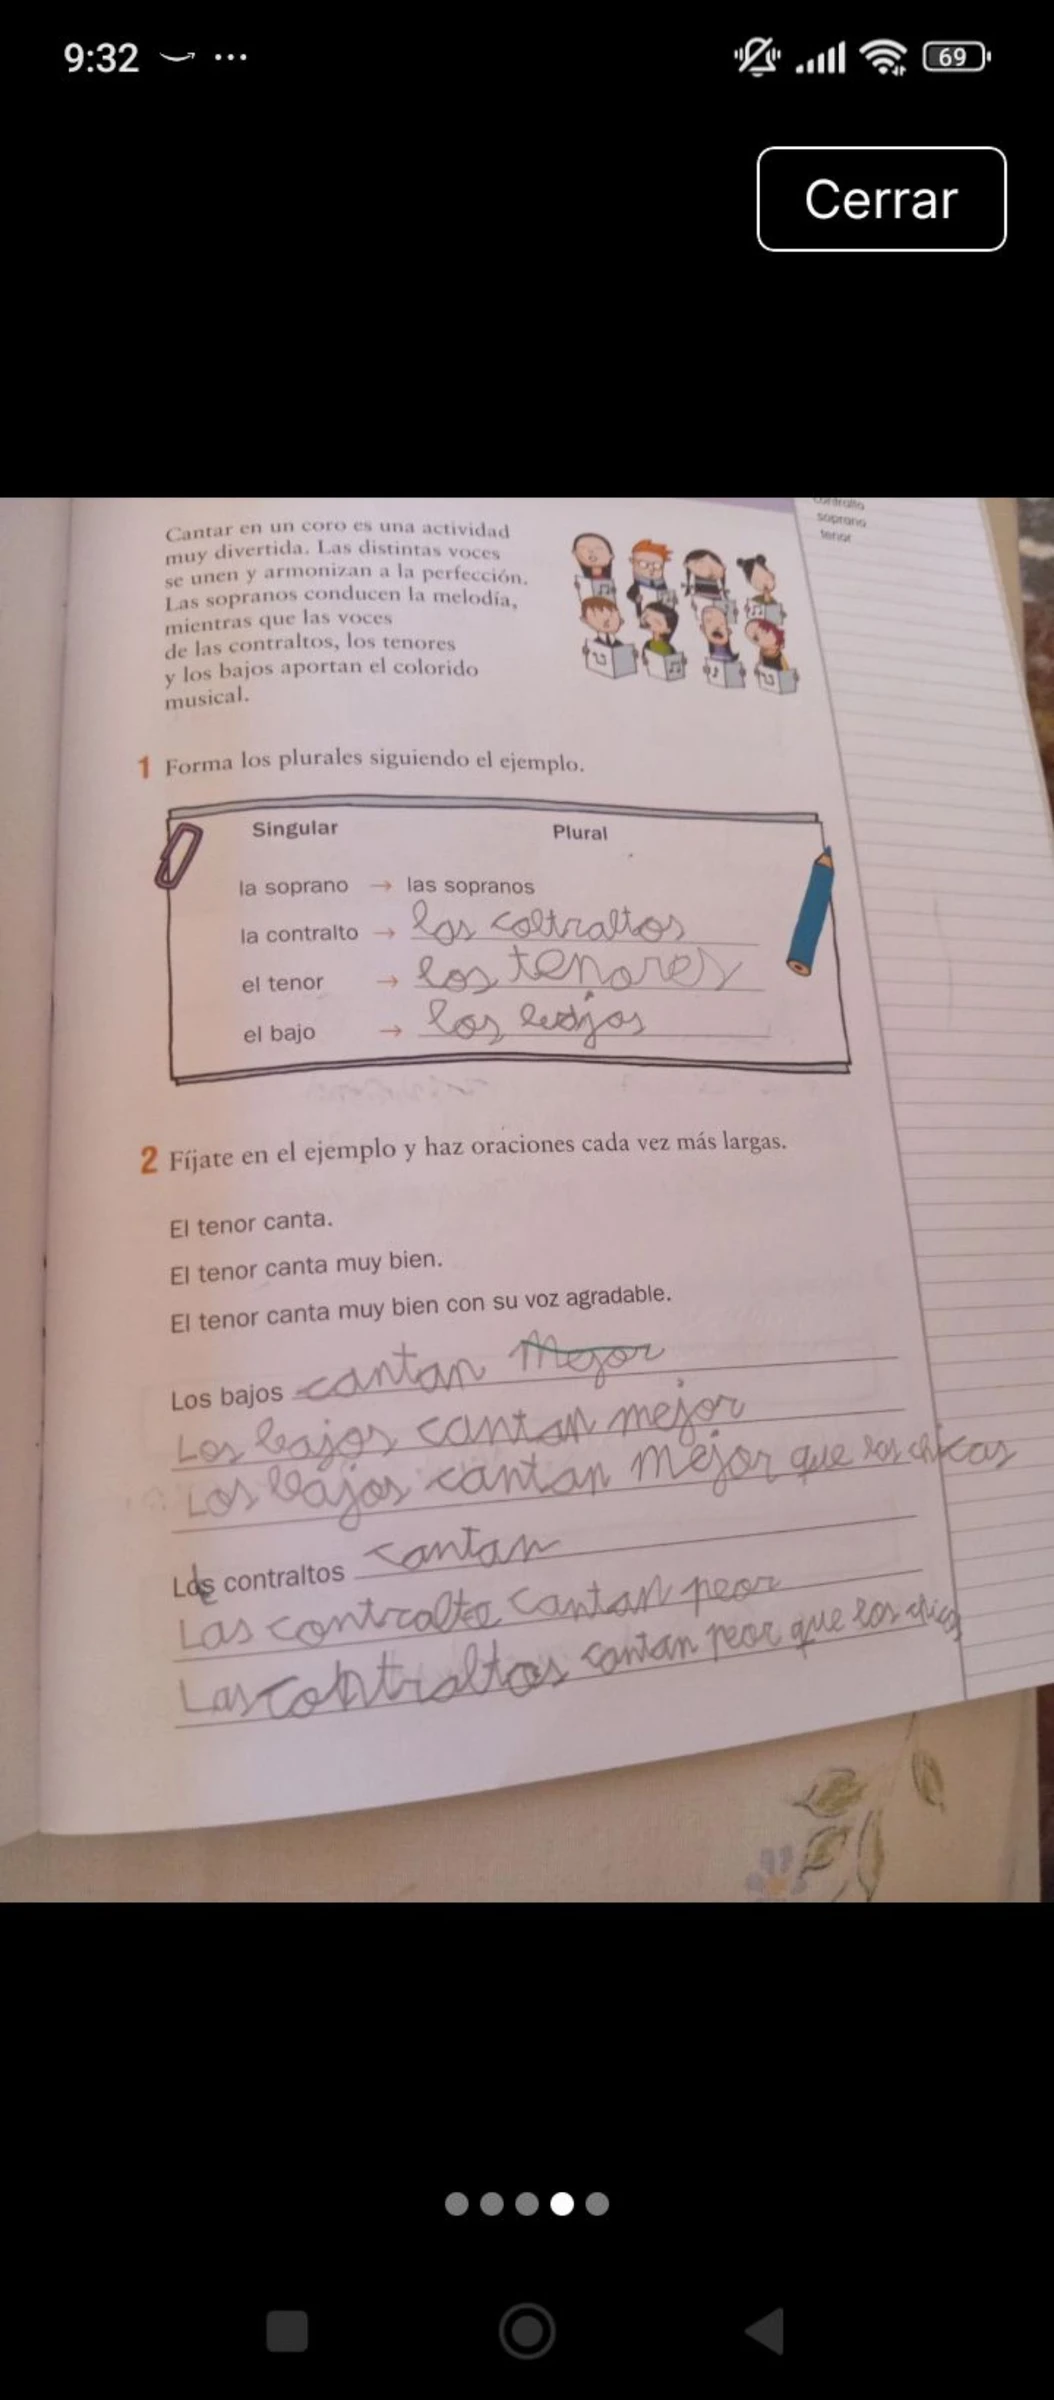 9:32
69
Cerrar
contralto
soprano
tenor
Cantar en un coro es una actividad
muy divertida. Las distintas voces
se unen y armonizan a la perfección.
Las sopranos conducen la melodía,
mientras que las voces
de las contraltos, los tenores
y los bajos aportan el colorido
musical.
1 Forma los plurales siguiendo el ejemplo.
Singular Plural
la soprano → las sopranos
la contralto → las coltraltos
el tenor → los tenores
el bajo → los bajos
2 Fíjate en el ejemplo y haz oraciones cada vez más largas.
El tenor canta.
El tenor canta muy bien.
El tenor canta muy bien con su voz agradable.
Los bajos cantan Mejor
Los bajos cantan mejor
Los bajos cantan mejor que las chicas
Los contraltos cantan
Las contralto cantan peor
Las contraltos cantan peor que los chicos